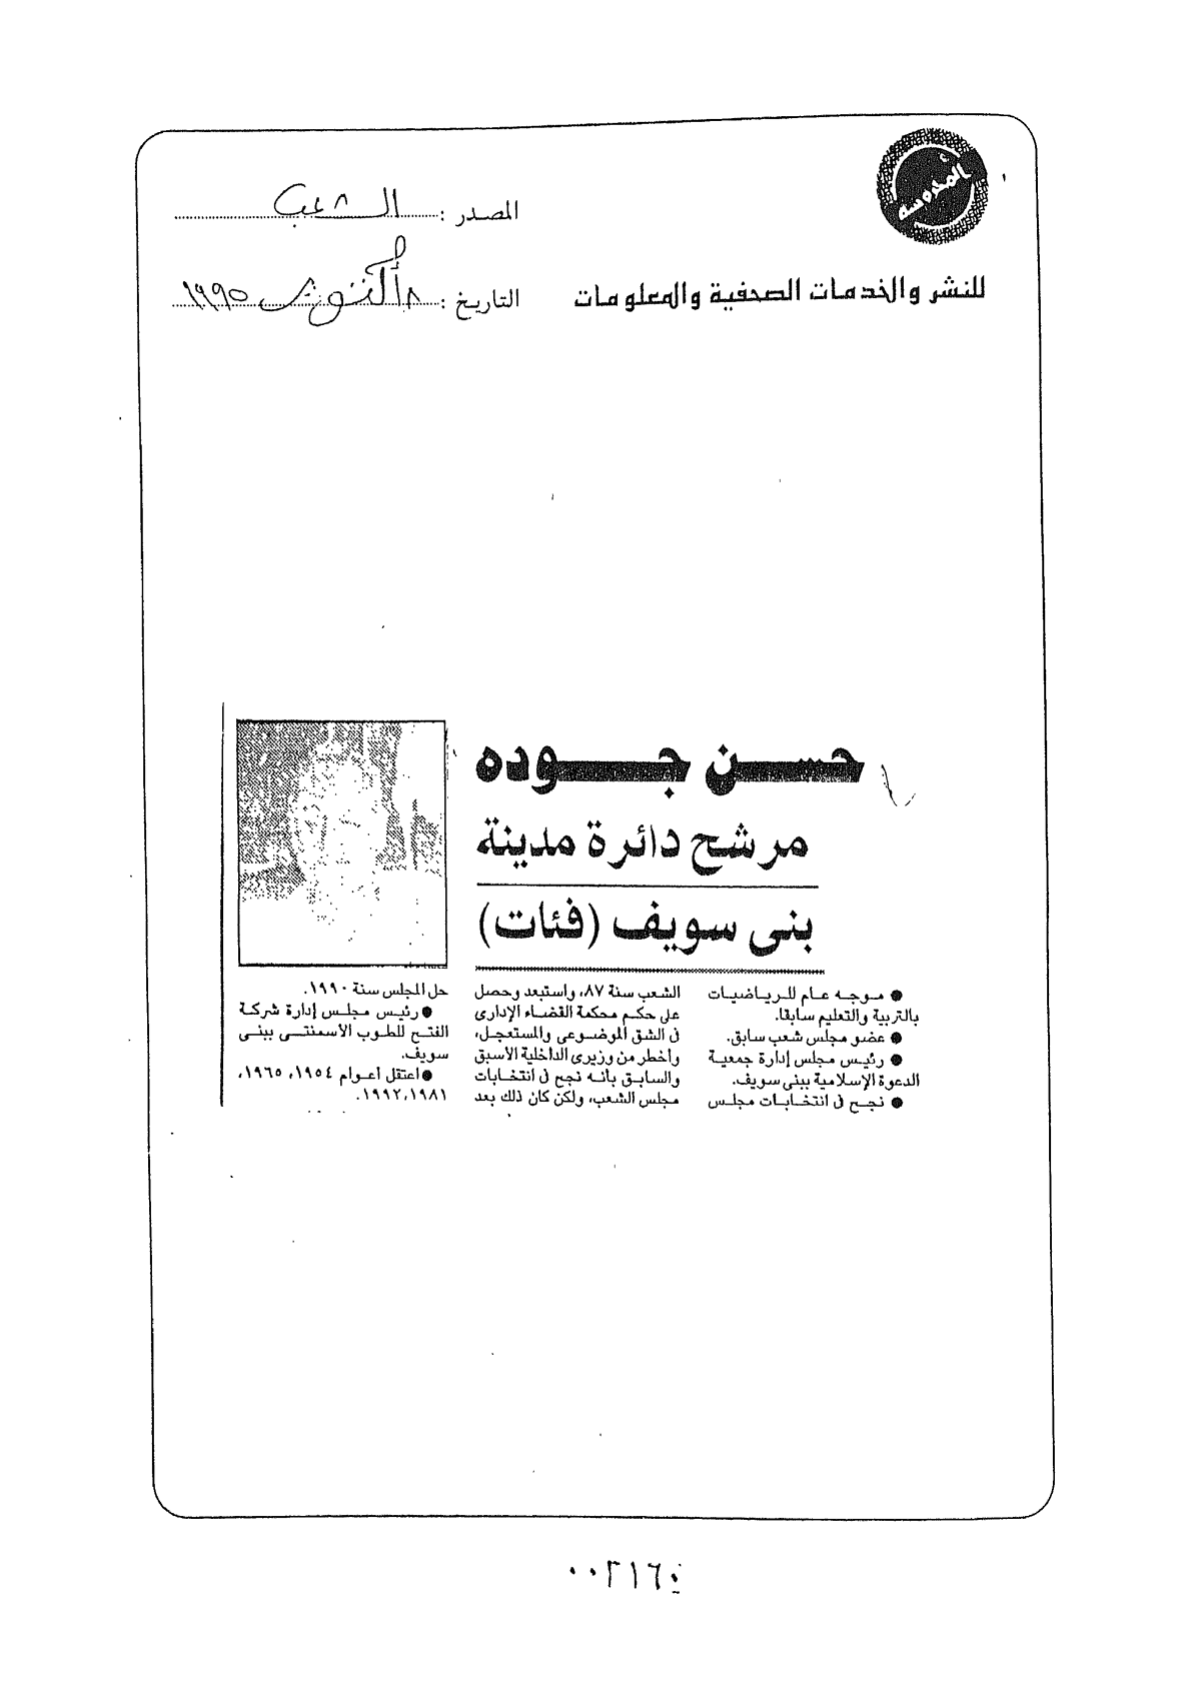 المحروسة
المصدر : الشعب
للنشر والخدمات الصحفية والمعلومات
التاريخ : ٨ أكتوبر ١٩٩٥
حسن جوده
مرشح دائرة مدينة
بنى سويف (فئات)
● موجه عام للرياضيات
بالتربية والتعليم سابقا.
● عضو مجلس شعب سابق.
● رئيس مجلس إدارة جمعية
الدعوة الإسلامية ببنى سويف.
● نجح فى انتخابات مجلس
الشعب سنة ٨٧، واستبعد وحصل
على حكم محكمة القضاء الإدارى
فى الشق الموضوعى والمستعجل،
واخطر من وزيرى الداخلية الأسبق
والسابق بأنه نجح فى انتخابات
مجلس الشعب، ولكن كان ذلك بعد
حل المجلس سنة ١٩٩٠.
● رئيس مجلس إدارة شركة
الفتح للطوب الأسمنتى ببنى
سويف.
● اعتقل أعوام ١٩٥٤، ١٩٦٥،
١٩٨١، ١٩٩٢.